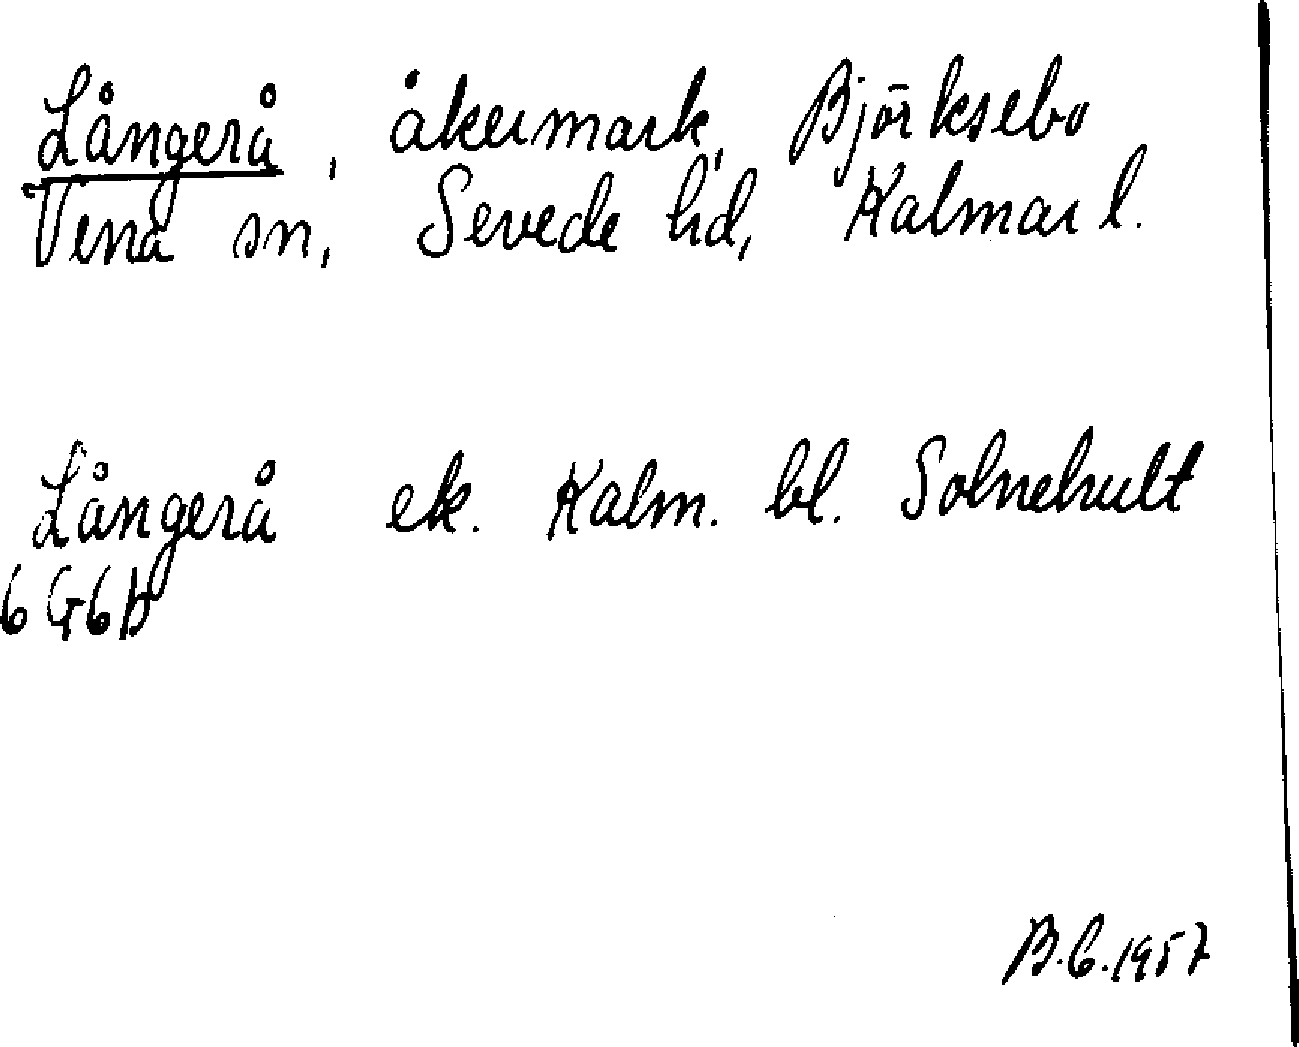 Långerå, åkermark, Björksebo
Vena sn, Sevede hd, Kalmar l.
Långerå ek. Kalm. bl. Solnehult
6G6b
B.C.1957